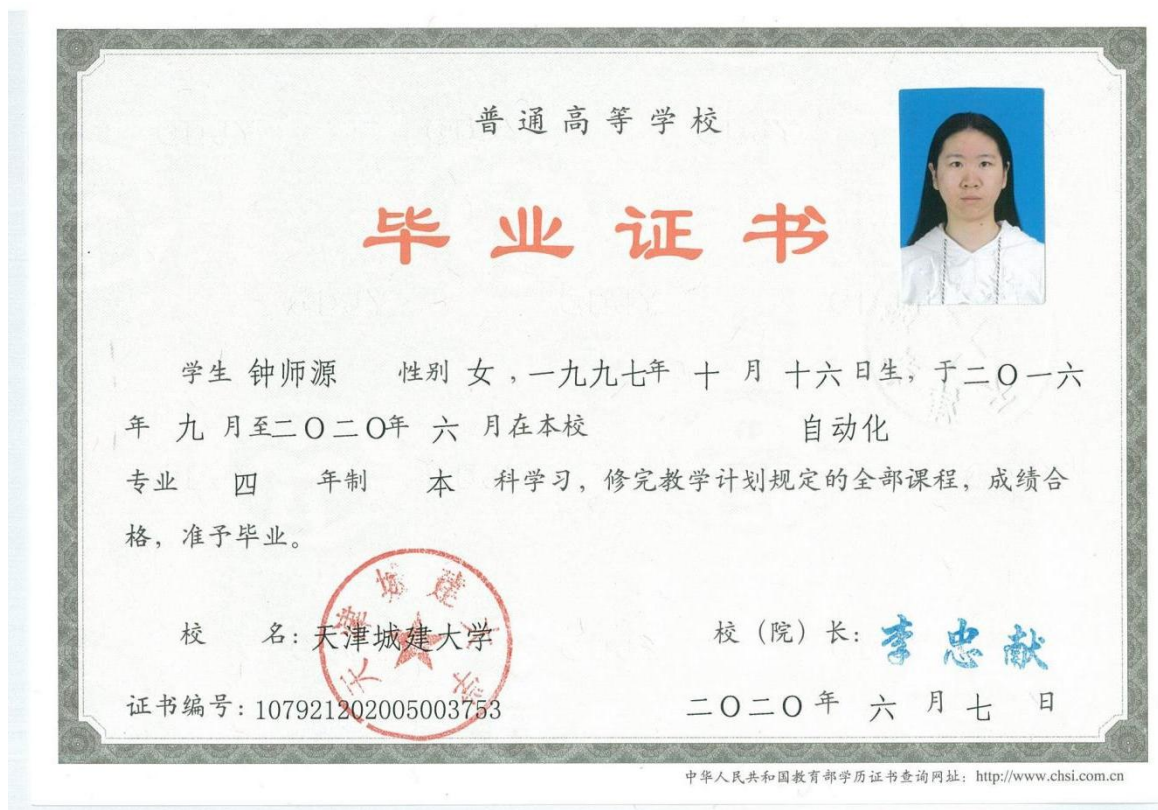 普通高等学校
毕业证书
学生 钟师源 性别 女，一九九七年 十 月 十六日生，于二〇一六
年 九 月至二〇二〇年 六 月在本校 自动化
专业 四 年制 本 科学习，修完教学计划规定的全部课程，成绩合
格，准予毕业。
校 名：天津城建大学
校（院）长：李忠献
天津城建大学
证书编号：107921202005003753
二〇二〇年 六 月 七 日
中华人民共和国教育部学历证书查询网址：http://www.chsi.com.cn